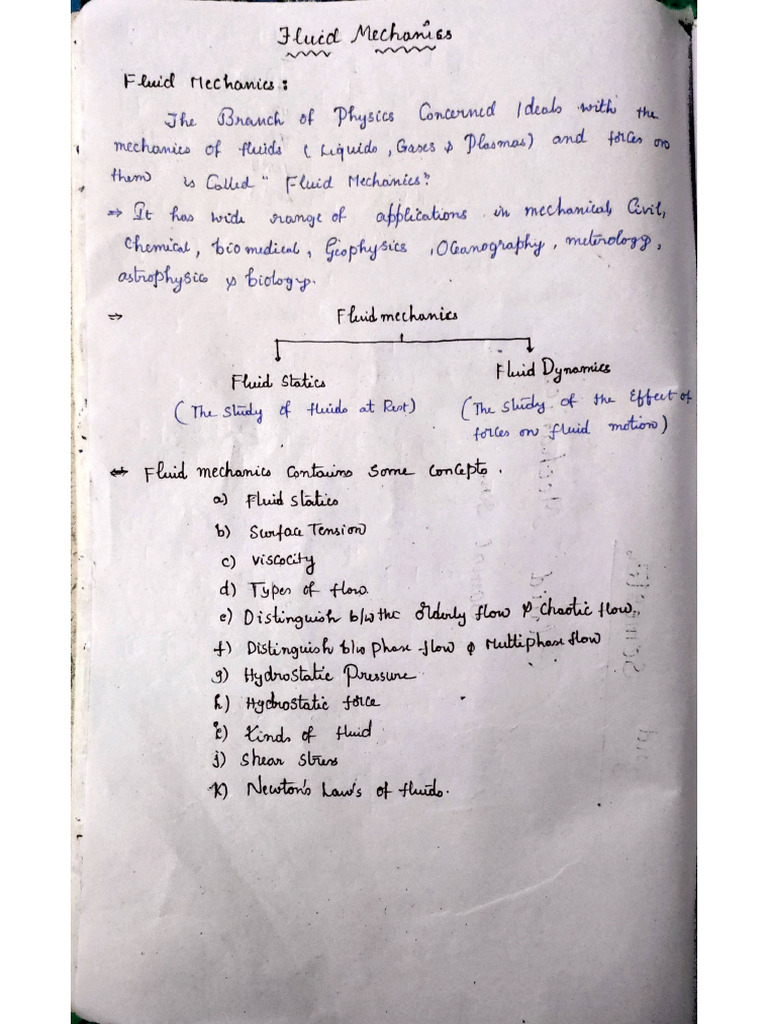 Fluid Mechanics
Fluid Mechanics :
The Branch of Physics Concerned / deals with the
mechanics of fluids ( Liquids , Gases & Plasmas ) and forces on
them is Called " Fluid Mechanics".
⇒ It has wide range of applications in mechanical, Civil,
Chemical , biomedical , Geophysics , Oceanography , meterology ,
astrophysics & biology.
⇒ Fluid mechanics
Fluid Statics Fluid Dynamics
( The Study of fluids at Rest ) ( The Study of the Effect of
forces on fluid motion )
⇔ Fluid mechanics Contains Some Concepts .
a) Fluid Statics
b) Surface Tension
c) Viscocity
d) Types of flow.
e) Distinguish b/w the Orderly flow & Chaotic flow.
f) Distinguish b/w phase flow & Multiphase flow
g) Hydrostatic Pressure
h) Hydrostatic force
i) Kinds of fluid
j) Shear Stress
k) Newton's Law's of fluids.